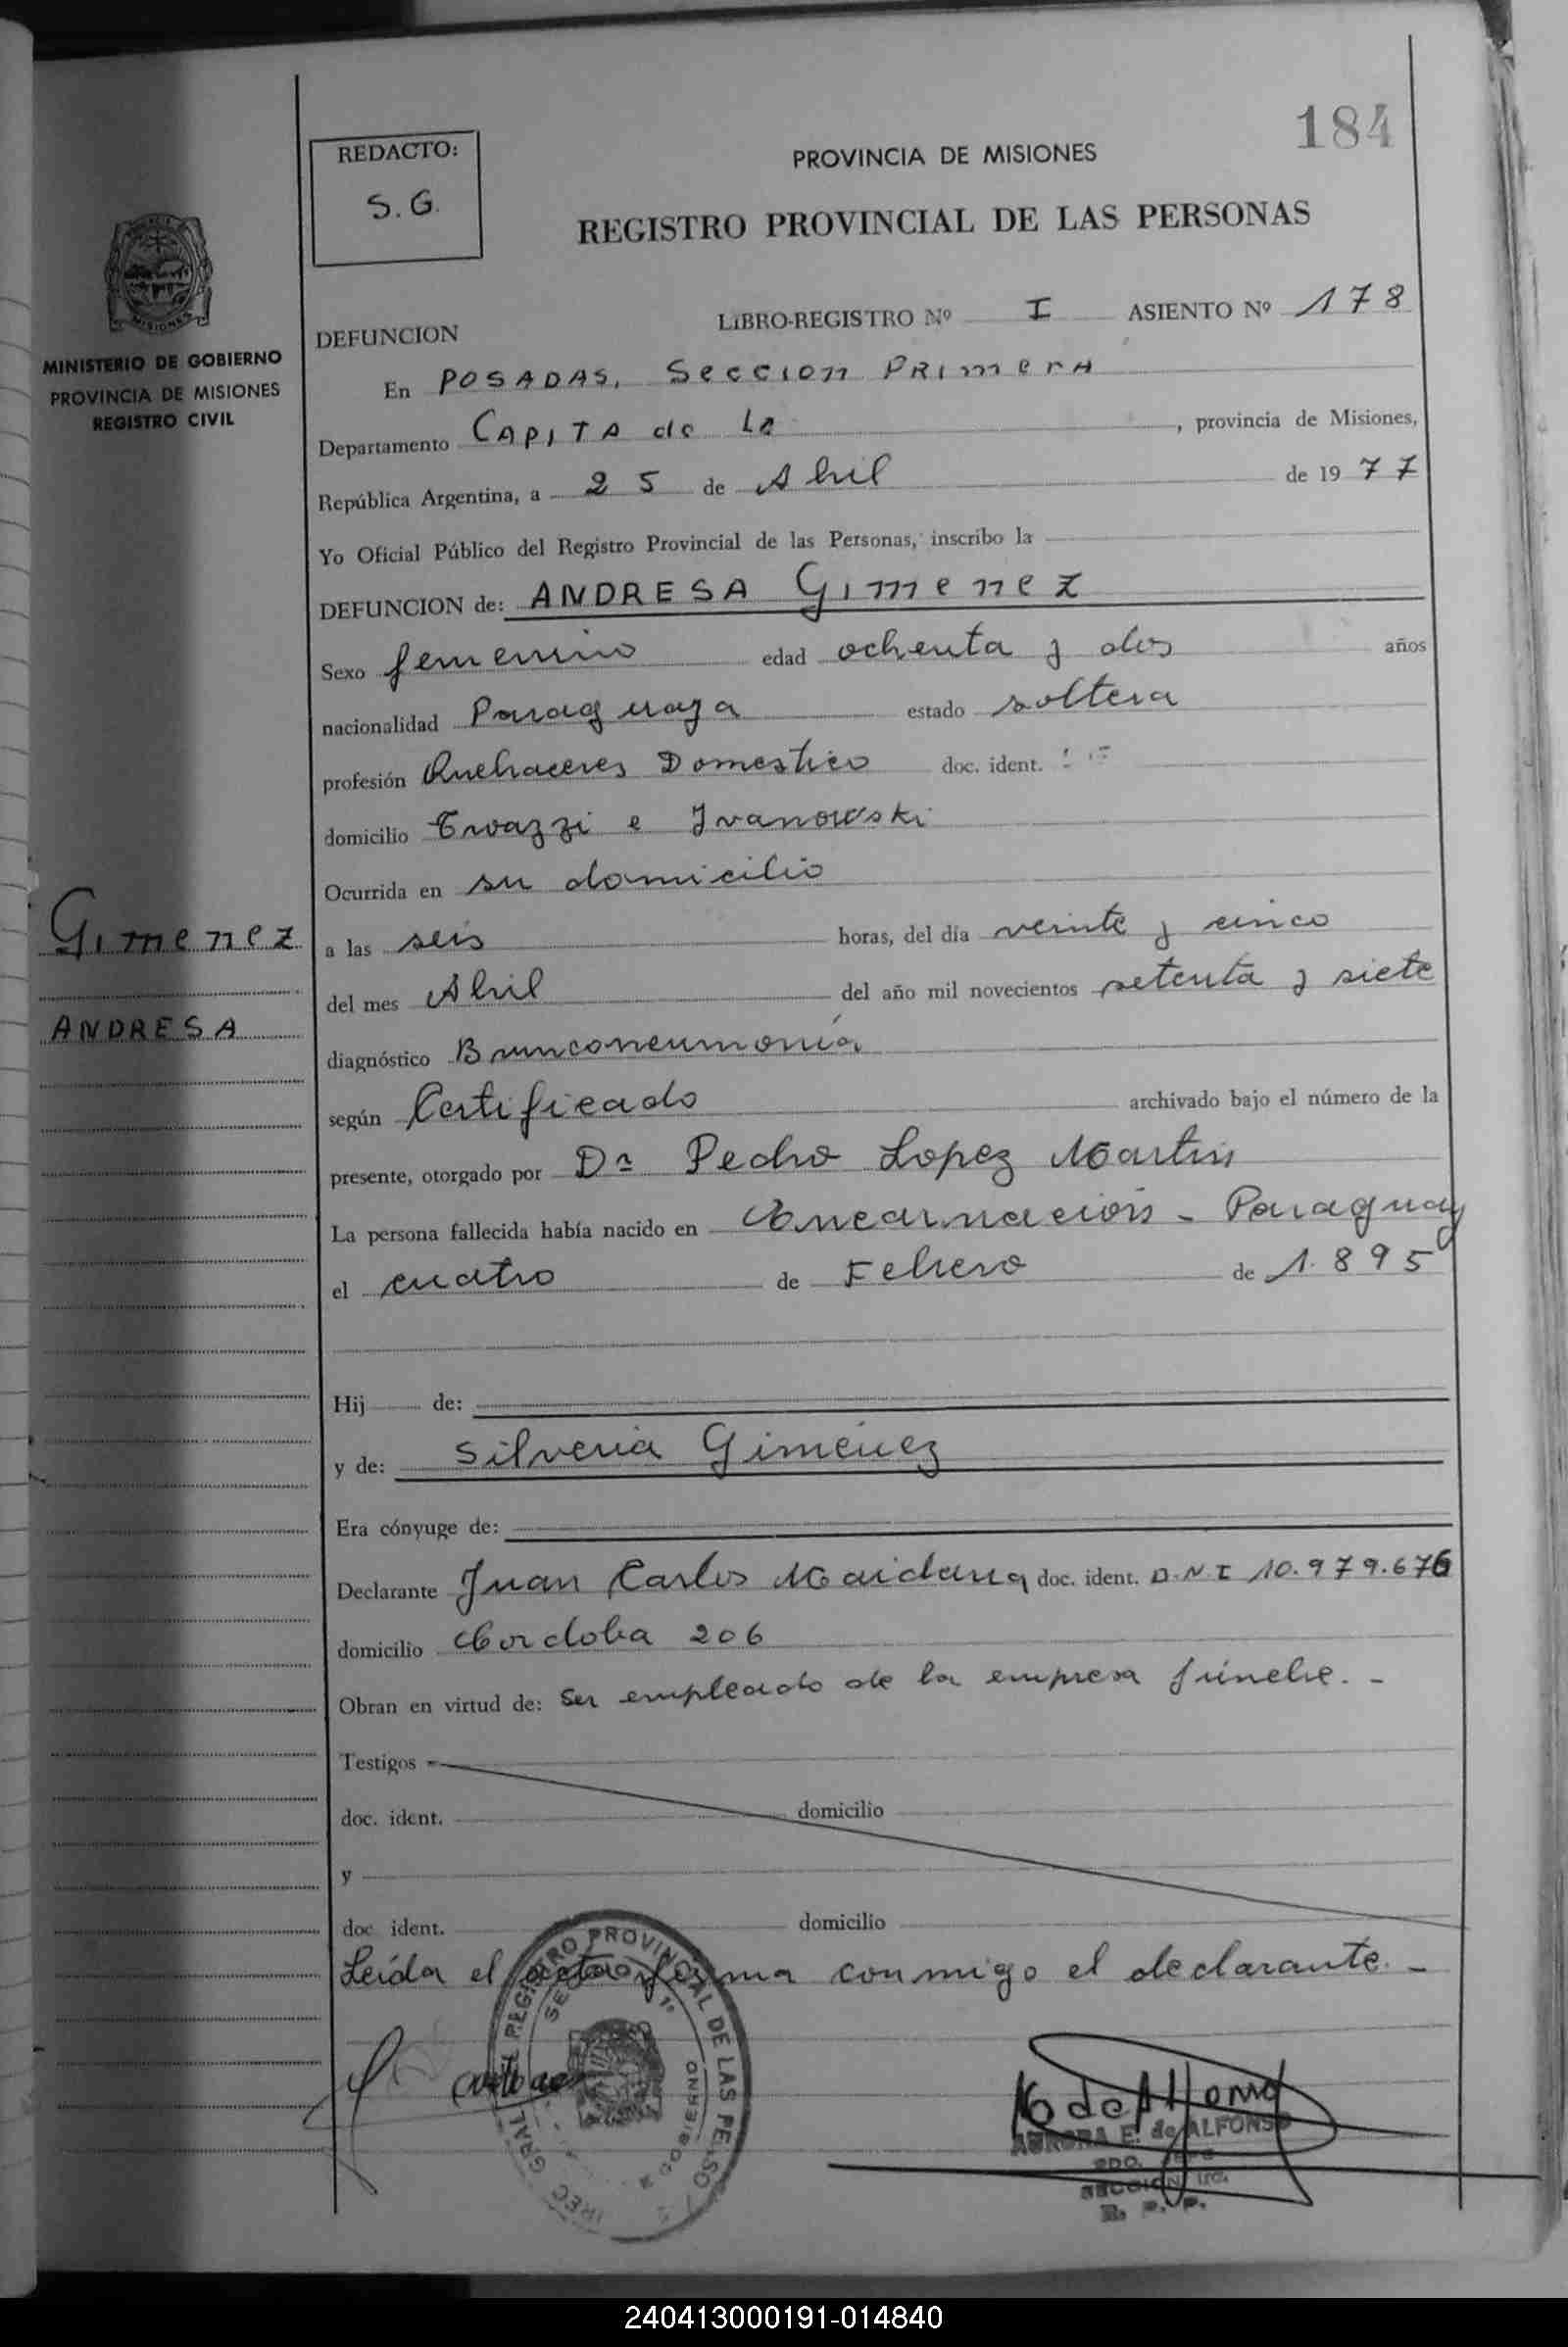 184
REDACTO:
S.G.
PROVINCIA DE MISIONES
REGISTRO PROVINCIAL DE LAS PERSONAS
MISIONES
MINISTERIO DE GOBIERNO
PROVINCIA DE MISIONES
REGISTRO CIVIL
DEFUNCION LIBRO-REGISTRO Nº I ASIENTO Nº 178
En POSADAS, Seccion PRimerA
Departamento CAPITA de La, provincia de Misiones,
República Argentina, a 25 de Abril de 1977
Yo Oficial Público del Registro Provincial de las Personas, inscribo la
DEFUNCION de: ANDRESA Gimenez
Sexo femenino edad ochenta y dos años
nacionalidad Paraguaya estado soltera
profesión Quehaceres Domestico doc. ident.
domicilio e Ivanowski
Ocurrida en su domicilio
Gimenez
ANDRESA
a las seis horas, del día veinte y cinco
del mes Abril del año mil novecientos setenta y siete
diagnóstico Brunconeumonía
según Certificado archivado bajo el número de la
presente, otorgado por Dr Pedro Lopez Martin
La persona fallecida había nacido en Encarnación - Paraguay
el cuatro de Febrero de 1.895
Hij de:
y de: Silveria Gimenez
Era cónyuge de:
Declarante Juan Carlos Maidana doc. ident. D.N.I 10.979.676
domicilio Cordoba 206
Obran en virtud de: Ser empleado de la empresa fúnebre. -
Testigos
doc. ident. domicilio
y
doc ident. domicilio
Leída el acta firma conmigo el declarante. -
REGISTRO PROVINCIAL DE LAS PERSO
GOBIERNO
AURORA E. de ALFONSO
SECCION 1ra.
R. P. P.
240413000191-014840